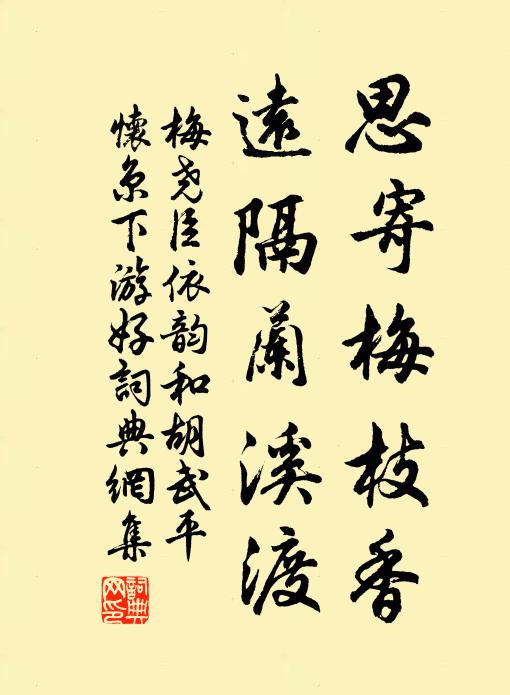 思寄梅枝香
遠隔蘭溪渡
梅堯臣依韵和胡武平
懷京下游好詞典網集
詞典